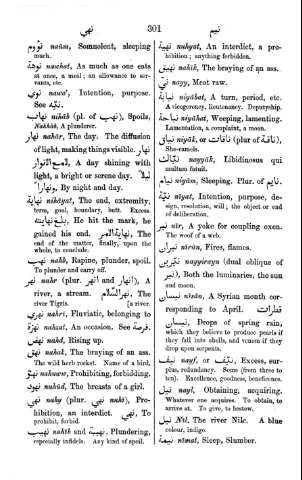 نهي 301 نيم
نؤوم naūm, Somnolent, sleeping
much.
نوهة nawhat, As much as one eats
at once, a meal; an allowance to ser-
vants, etc.
نوي nawa', Intention, purpose.
See نيّة.
نهاب nihāb (pl. of نهب), Spoils,
Nahhāb, A plunderer.
نهار nahār, The day. The diffusion
of light, making things visible. نهار
لامع الانوار A day shining with
light, a bright or serene day. ليلاً
ونهارا By night and day.
نهاية nihāyat, The end, extremity,
term, goal, boundary, butt. Excess.
بلغ نهايته He hit the mark, he
gained his end. نهاية الامر The
end of the matter, finally, upon the
whole, to conclude.
نهب nahb, Rapine, plunder, spoil.
To plunder and carry off.
نهر nahr (plur. انهر and انهار), A
river, a stream. نهر السلام The
river Tigris. [a river.
نهري nahri, Fluviatic, belonging to
نهزة nahzat, An occasion. See فرصة.
نهض nahd, Rising up.
نهق nahak, The braying of an ass.
The wild herb rocket. Name of a bird.
نهو nahw, Prohibiting, forbidding.
نهود nuhūd, The breasts of a girl.
نهي nahy (plur. نهى nuhā), Pro-
hibition, an interdict. نهي To
prohibit, forbid.
نهيب nahīb and نهيبة, Plundering,
especially infidels. Any kind of spoil.
نهية nuhyat, An interdict, a pro-
hibition; anything forbidden.
نهيق nahīk, The braying of an ass.
ني nayy, Meat raw.
نيابة niyābat, A turn, period, etc.
A vicegerency. Lieutenancy. Deputyship.
نياحة niyāhat, Weeping, lamenting.
Lamentation, a complaint, a moan.
نياق or نياقات (plur of ناقة),
She-camels.
نيّاك nayyāk, Libidinosus qui
multum futuit.
نيام niyām, Sleeping. Plur. of نايم.
نيّة nīyat, Intention, purpose, de-
sign, resolution, will; the object or end
of deliberation.
نير nīr, A yoke for coupling oxen.
The woof of a web.
نيران nīrān, Fires, flames.
نيّرين nayyirayn (dual oblique of
نيّر), Both the luminaries, the sun
and moon.
نيسان nīsān, A Syrian month cor-
responding to April. قطرات
نيسان Drops of spring rain,
which they believe to produce pearls if
they fall into shells, and venom if they
drop upon serpents.
نيف nayf, or نيّف, Excess, sur-
plus, redundancy. Some (from three to
ten). Excellence, goodness, beneficence.
نيل nayl, Obtaining, acquiring.
Whatever one acquires. To obtain, to
arrive at. To give, to bestow.
نيل Nīl, The river Nile. A blue
colour, indigo.
نيمة nīmat, Sleep, Slumber.